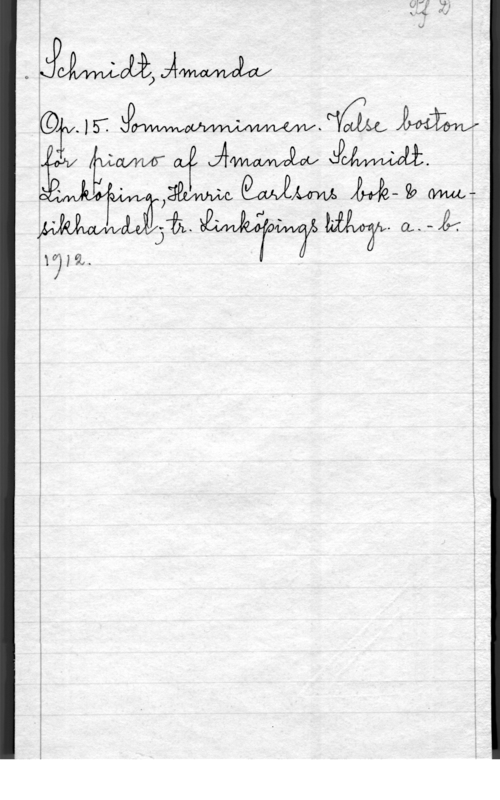 Pf D
Schmidt, Amanda
Op. 15. Sommarminnen. Valse boston
för piano af Amanda Schmidt.
Linköping, Henric Carlsons bok- & mu-
sikhandel; tr. Linköpings lithogr. a.-b.
1912.